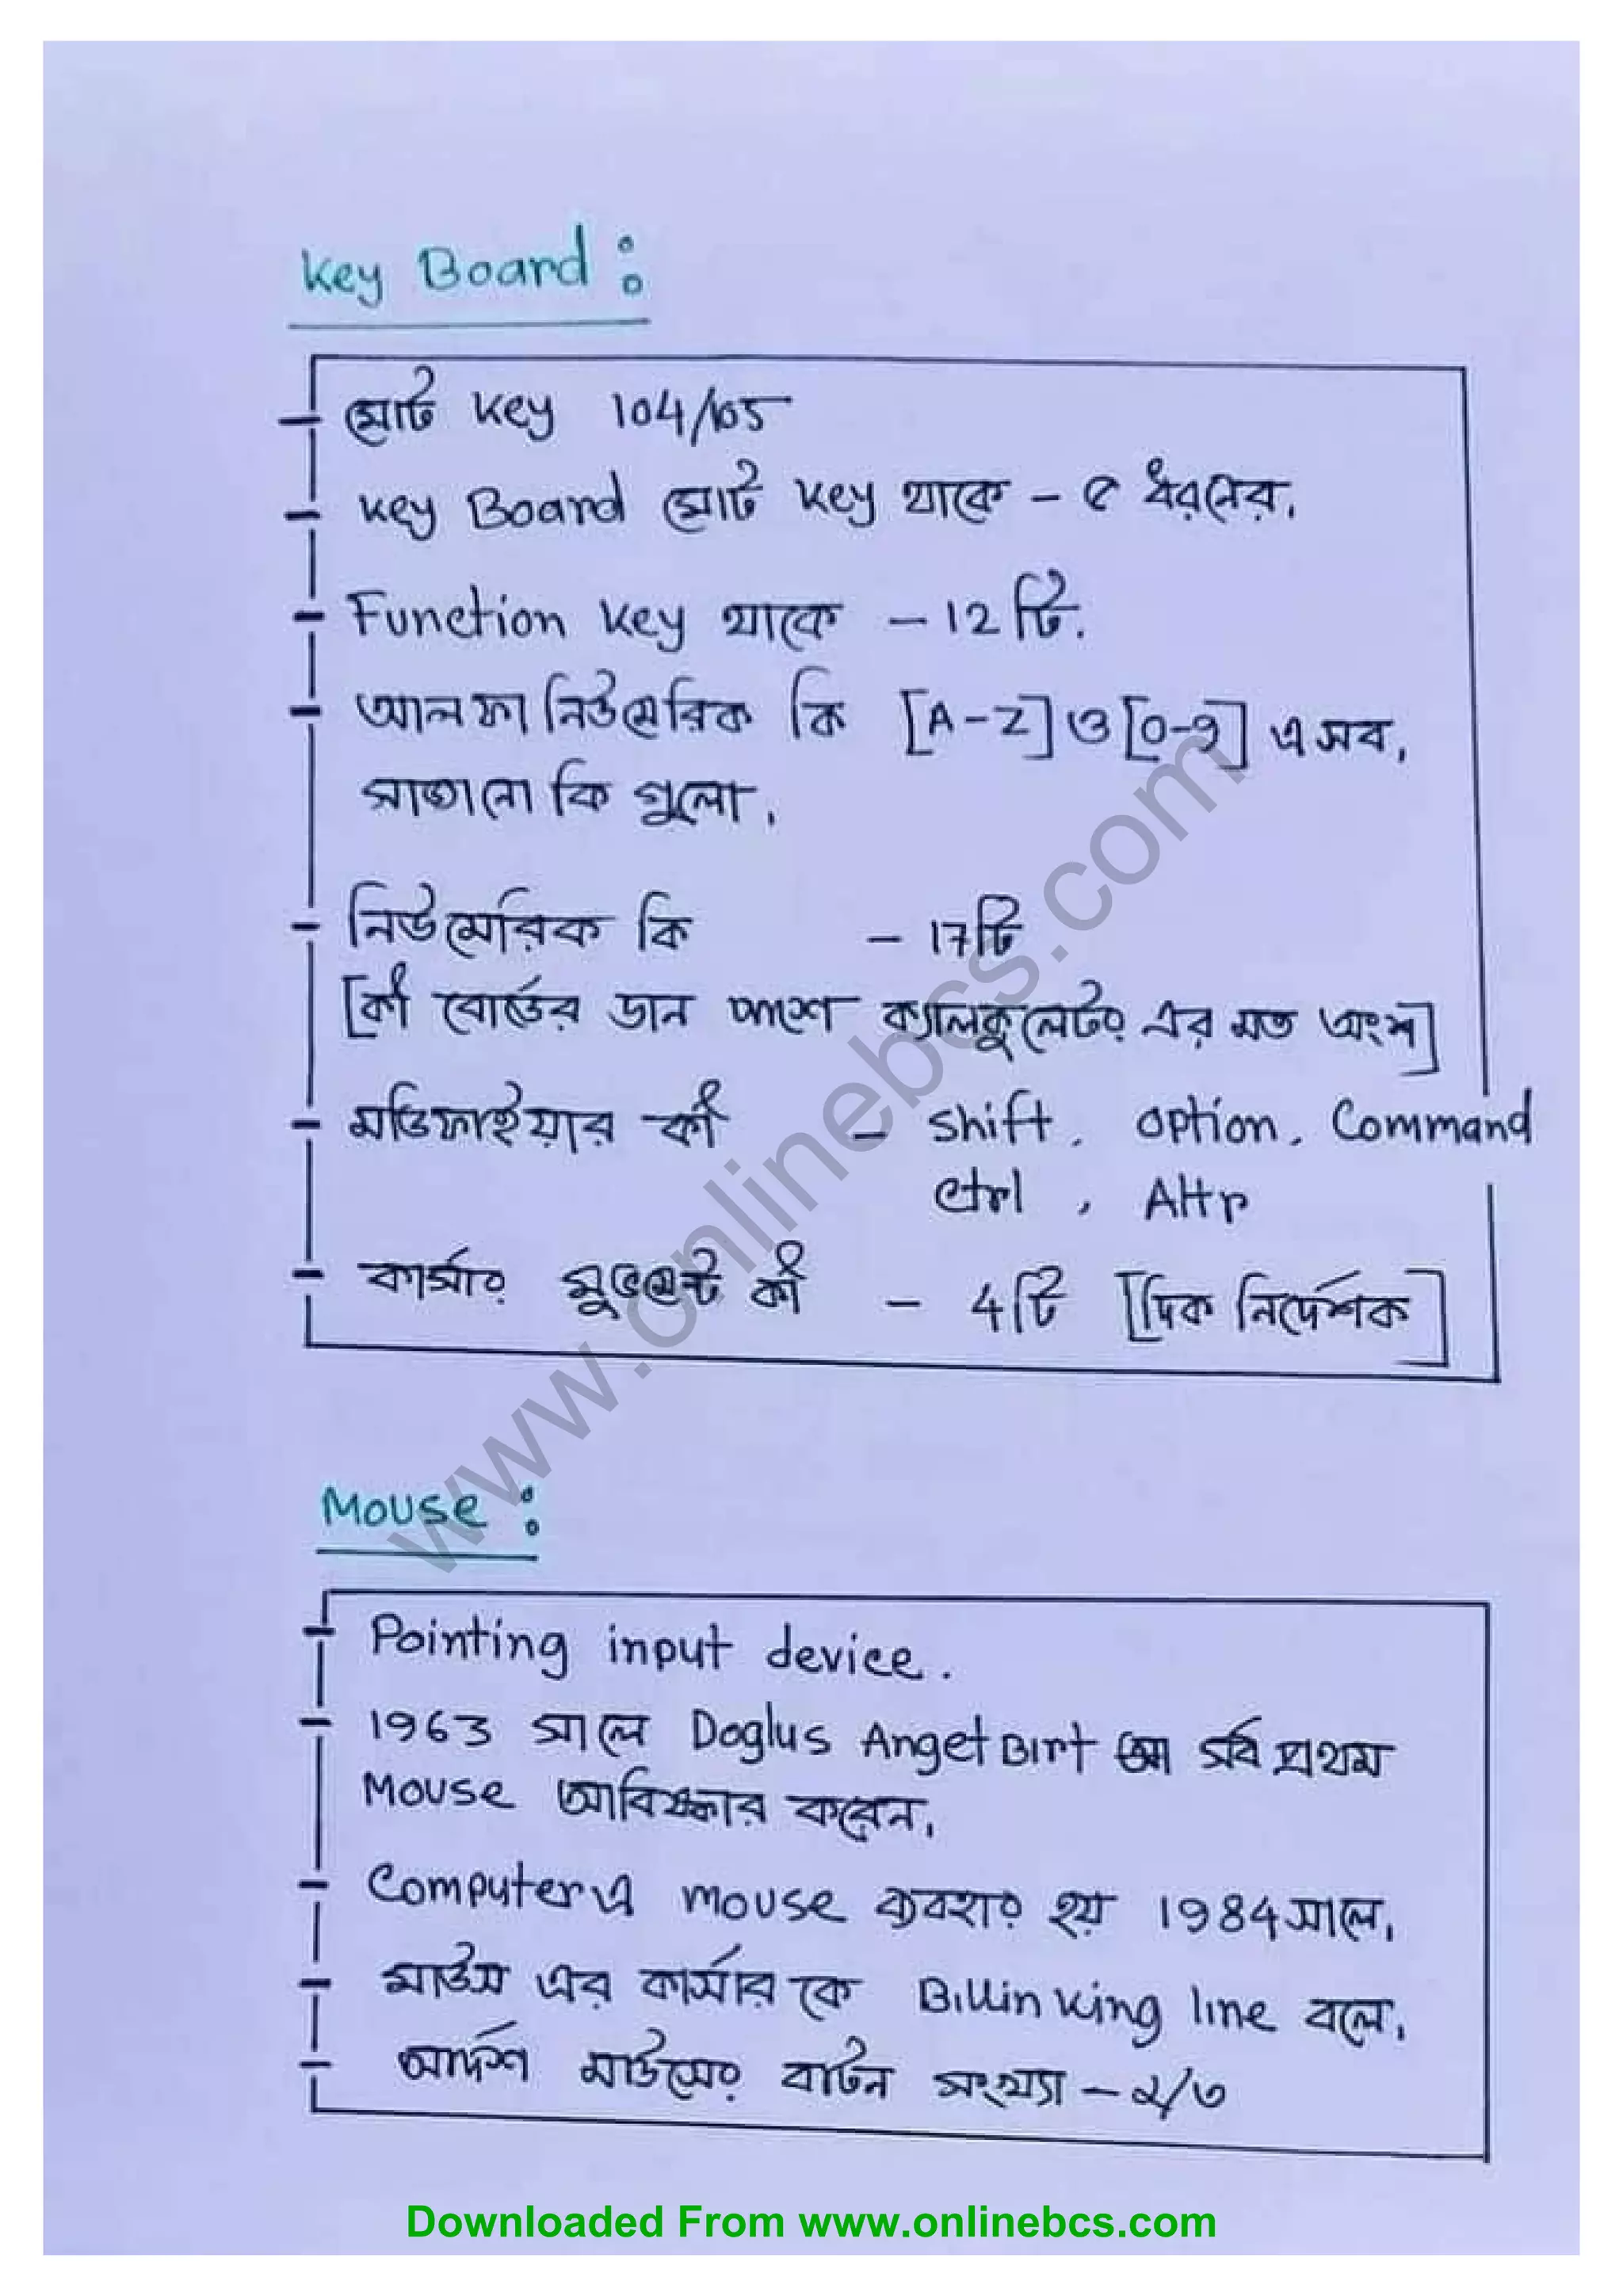 Key Board :
মোট key 104/105
key Board মোট key থাকে - ৫ ধরনের.
Function key থাকে - 12 টি.
আলফা নিউমেরিক কি [A-Z] ও [0-9] এসব,
সাজানো কি গুলো.
নিউমেরিক কি - 17টি
[কী বোর্ডের ডান পাশে ক্যালকুলেটর এর মত অংশ]
মডিফাইয়ার কী - Shift, option, Command
ctrl , Altr
কার্সার মুভমেন্ট কী - 4টি [দিক নির্দেশক]
Mouse :
Pointing input device.
1963 সালে Doglus AngetBirt সর্ব প্রথম
Mouse আবিষ্কার করেন.
Computer এ mouse ব্যবহার হয় 1984 সালে.
মাউস এর কার্সার কে Billinking line বলে.
আর্দশ মাউসের বাটন সংখ্যা - ২/৩
www.onlinebcs.com
Downloaded From www.onlinebcs.com